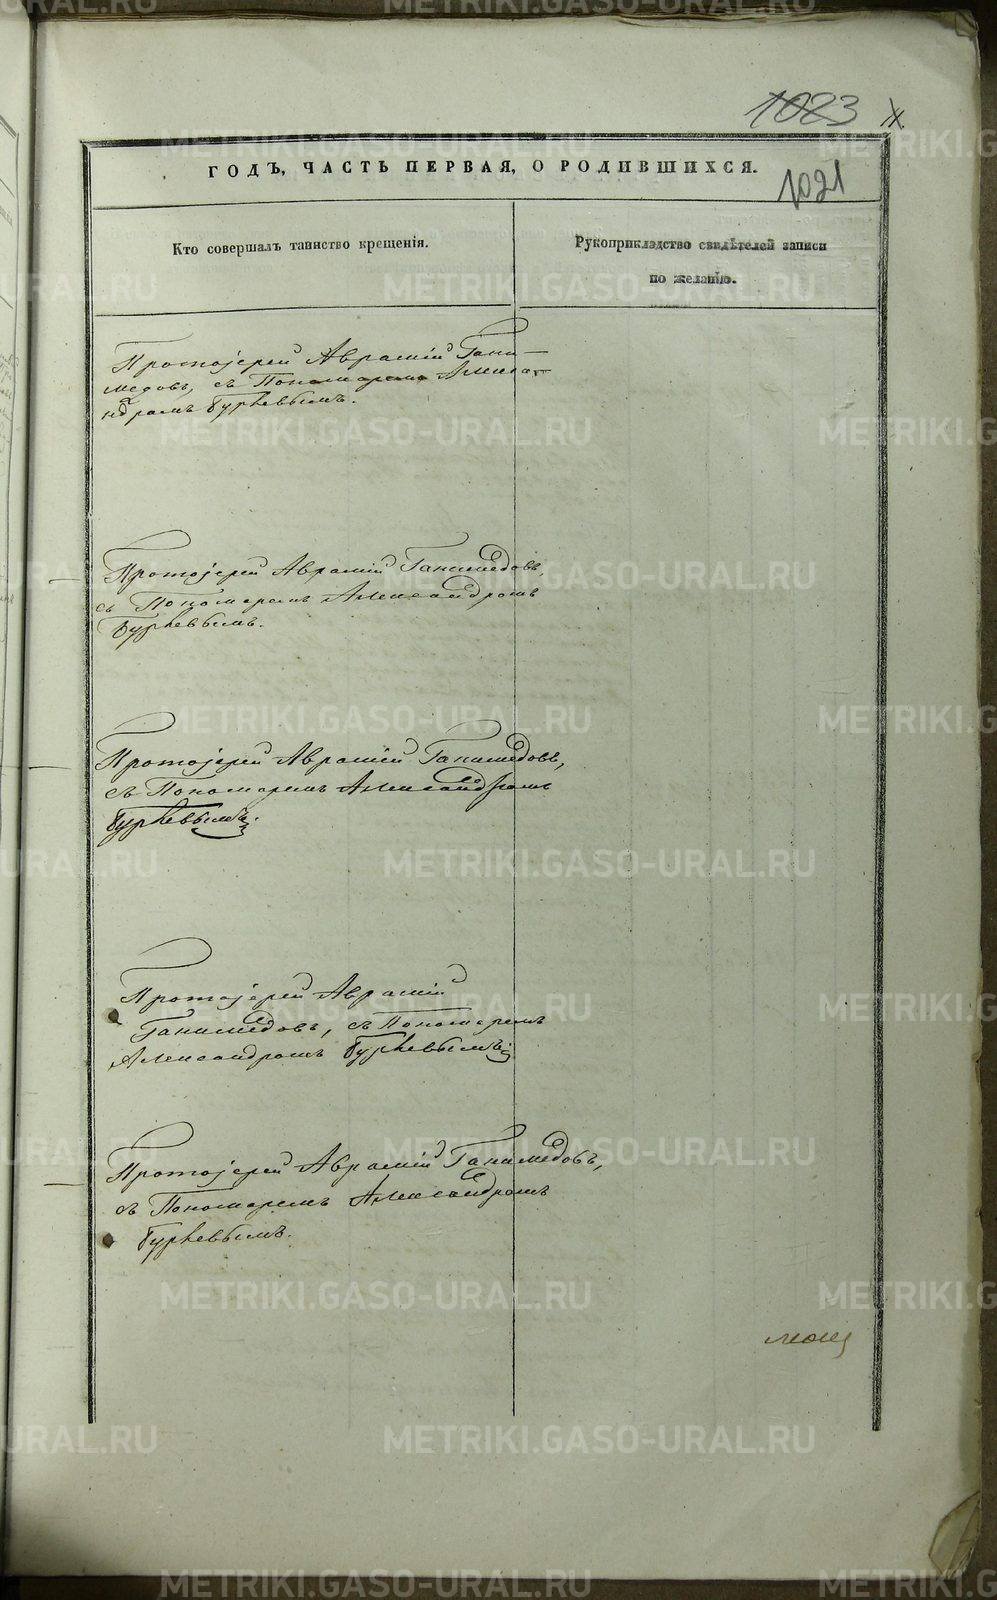 1023
1021
ГОДЪ, ЧАСТЬ ПЕРВАЯ, О РОДИВШИХСЯ.
Кто совершалъ таинство крещенія.
Рукоприкладство свидѣтелей записи
по желанію.
Протоіерей Аврамій Гани-
медовъ, съ Пономаремъ Алекса-
ндромъ Бурневымъ.
Протоіерей Аврамій Ганимедовъ,
съ Пономаремъ Александромъ
Бурневымъ.
Протоіерей Аврамій Ганимедовъ,
съ Пономаремъ Александромъ
Бурневымъ.
Протоіерей Аврамій
Ганимедовъ, съ Пономаремъ
Александромъ Бурневымъ
Протоіерей Аврамій Ганимедовъ,
съ Пономаремъ Александромъ
Бурневымъ.
METRIKI.GASO-URAL.RU